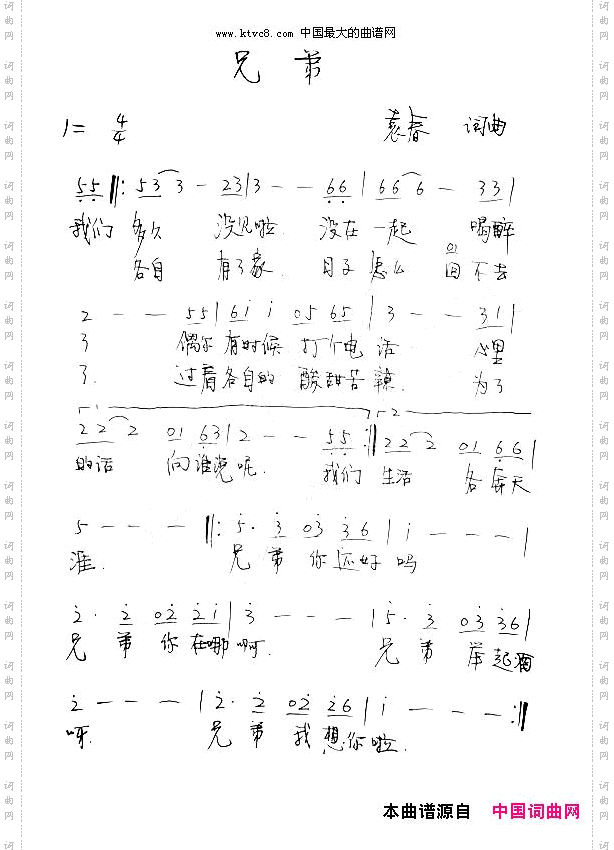 www.ktvc8.com 中国最大的曲谱网
兄 弟
1= 4/4 袁春 词曲
5 5 ‖: 5 3 3 - 2 3 | 3 - - 6 6 | 6 6 6 - 3 3 |
我们 多久 没见啦 没在 一起 喝醉
各自 有了家 日子 怎么 回 不去
2 - - 5 5 | 6 i i 0 5 6 5 | 3 - - 3 1 |
3 偶尔 有时候 打个电 话 心里
3 过着 各自的 酸甜苦 辣 为了
2 2 2 0 1 6 3 | 2 - - 5 5 :‖ 2 2 2 0 1 6 6 |
的话 向谁说呢 我们 生活 各 每天
5 - - - ‖: 5 · 3 0 3 3 6 | i - - - |
涯 兄 弟 你还好 吗
2 · 2 0 2 2 i | 3 - - - | 5 · 3 0 3 3 6 |
兄 弟 你 在哪 啊 兄 弟 举 起酒
2 - - - | 2 · 2 0 2 2 6 | i - - - :‖
呀 兄 弟 我 想你 啦
本曲谱源自 中国词曲网
词曲网